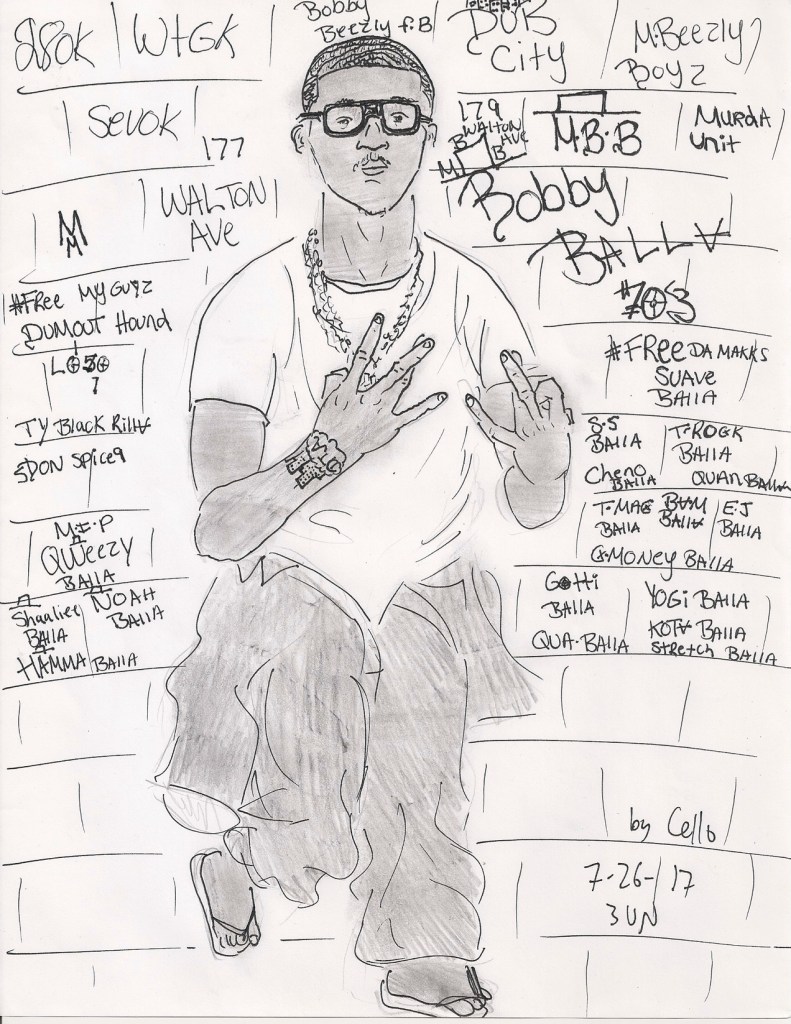 WTGK
Bobby
Beezly f.B
DUB
City
M.Beezly
Boyz
Sevok
177
WALTON
AVE
179
WALTON
AVE
M B B
M.B.B
MURDA
Unit
M
M
Bobby
BALLA
#703
#FREE MY GUYZ
DUMOUT HOUND
#FREE DA MAKKS
SUAVE
BAllA
TY Black Rilla
SPON Spice9
S.S
BAllA
T-ROCK
BAllA
Cheno
BAllA
QUAN BAllA
T-MAC
BAllA
BAM
BAllA
E.J
BAllA
G-MONEY BAllA
M.I.P
QWEEZY
BAllA
NOAH
BAllA
BAllA
HAMMA BAllA
GOTTI
BAllA
YOGI BAllA
QUA-BAllA
KOTA BAllA
Stretch BAllA
by Cello
7-26-17
3UN